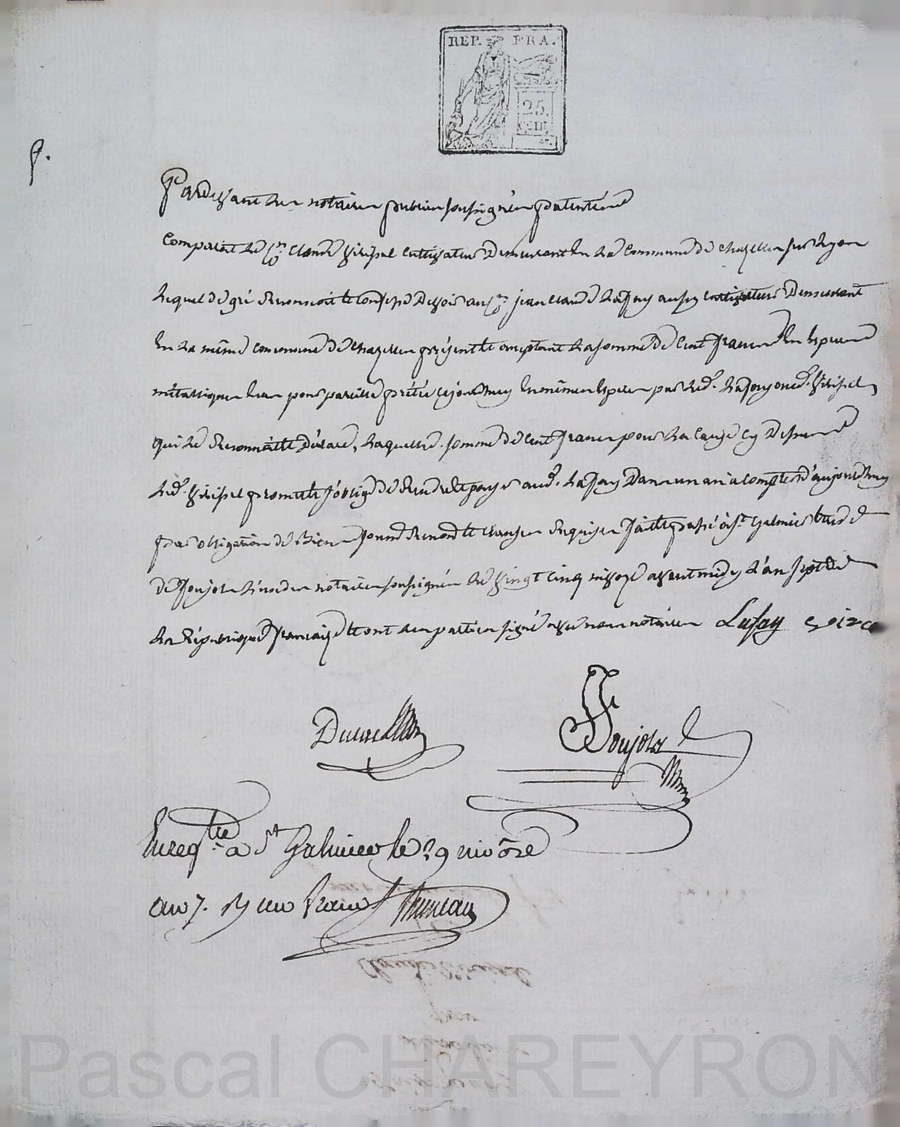 REP. FRA.
25
CENT.
Pardevant les notaires publics soussignés patentés
Comparut le Cn Claude cultivateur demeurant en la commune de Chazelles sur Lyon
lequel de gré reconnoit et confesse devoir au Cn jean Claude Lafay aussy cultivateur demeurant
en la même commune de Chazelles présent et acceptant la somme de cent francs en especes
métalliques pour pareille prêtée ce jourdhuy en mêmes especes par led. Lafay aud.
qui le reconnait et déclare, laquelle somme de cent francs pour la cause cy dessus
led. promet et s'oblige de rendre et payer aud. Lafay dans un an a compter d'aujourdhuy
par obligation de biens requises fait et passé à St Galmier étude
de Soujols l'un des notaires soussignés le vingt cinq nivose avant midy l'an sept de
la République française et ont les parties signé avec nous notaires Lafay
Soujols
Enregtré a St Galmier le 29 nivôse
an 7. Rçu un franc
Pascal CHAREYRON